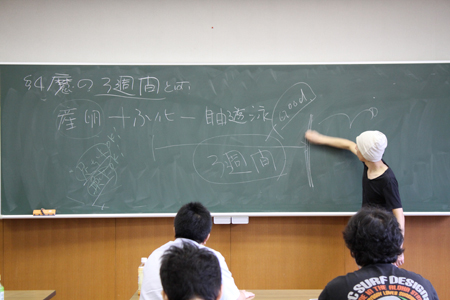 §4 魔の3週間とは
産卵―ふ化―自由遊泳
good
3週間
C SURF DESIGN